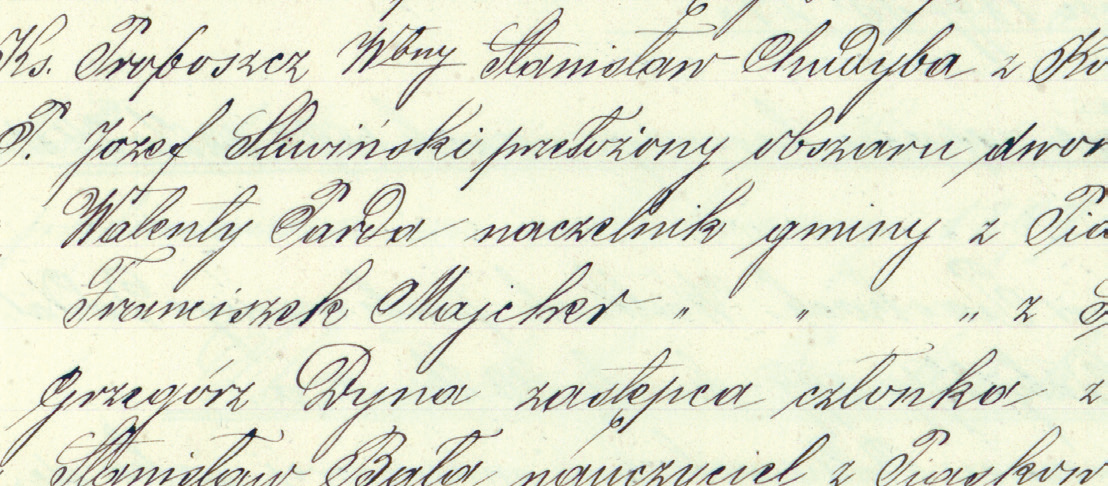 Ks. Proboszcz Wbny Stanisław Chudyba z Ko
P. Józef Śliwiński przełożony obszaru dwor
Walenty Parda naczelnik gminy z Pia
Franciszek Majcher " " " z
Grzegórz Dyna zastępca członka z
Stanisław Bała nauczyciel z Piasków